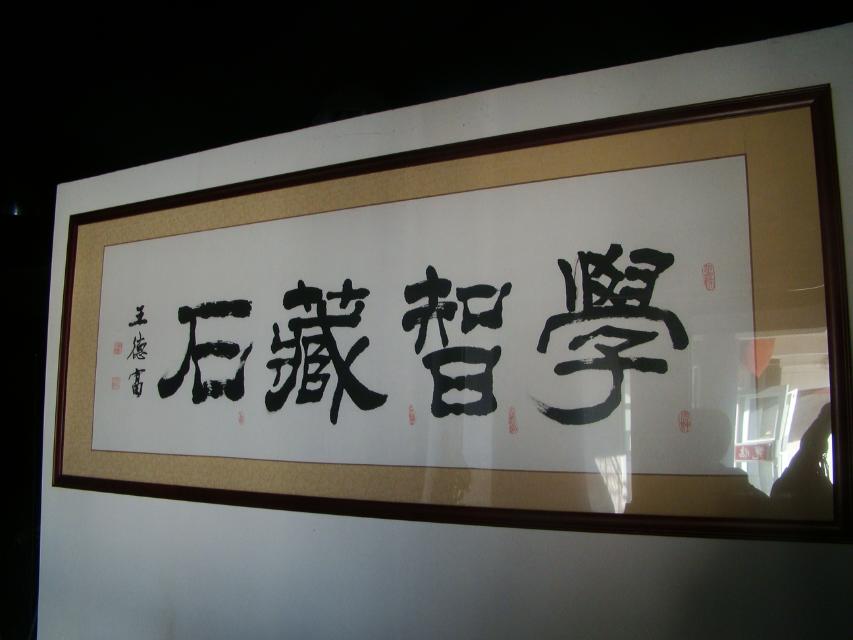 學智藏石
王德富